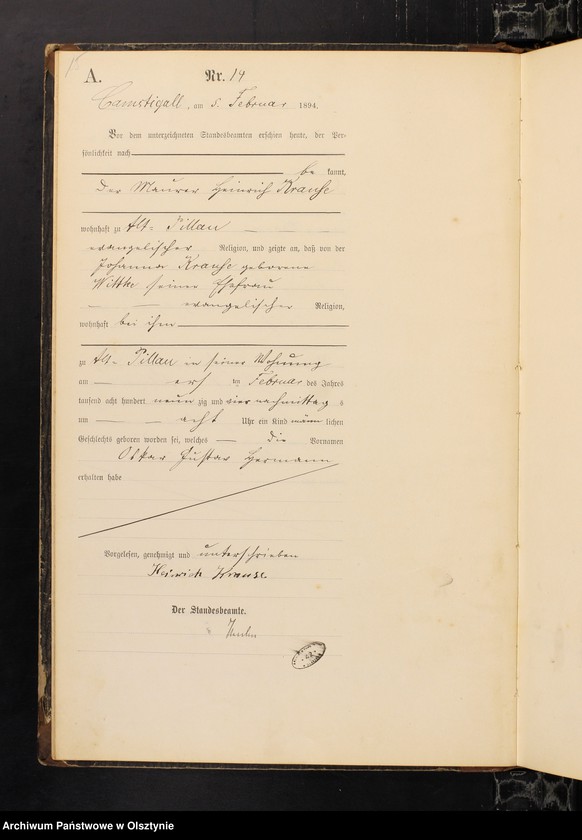 15
A.
Nr. 14
Camstigall, am 5. Februar 1894.
Vor dem unterzeichneten Standesbeamten erschien heute, der Per-
sönlichkeit nach
be kannt,
der Maurer Heinrich Krause
wohnhaft zu Alt-Pillau
evangelischer Religion, und zeigte an, daß von der
Johanna Krause geborene
Wittke seiner Ehefrau
evangelischer Religion,
wohnhaft bei ihm
zu Alt-Pillau in seiner Wohnung
am ersten Februar des Jahres
tausend acht hundert neun zig und vier nachmittag s
um acht Uhr ein Kind männlichen
Geschlechts geboren worden sei, welches die Vornamen
Oskar Gustav Hermann
erhalten habe
Vorgelesen, genehmigt und unterschrieben
Heinrich Krause
Der Standesbeamte.
Archiwum Państwowe w Olsztynie